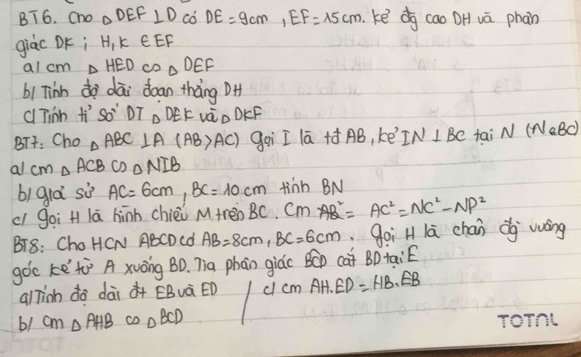 BT6. Cho △ DEF ⊥ D có DE = 9cm, EF = 15cm. kẻ đg cao DH và phân
giác DK ; H, K ∈ EF
a/ cm △ HED ∽ △ DEF
b/ Tính độ dài đoạn thẳng DH
c/ Tính tỉ số DT △ DEK và △ DKF
BT7: Cho △ ABC ⊥ A (AB > AC) gọi I là tđ AB, kẻ IN ⊥ BC tại N (N ∈ BC)
a/ cm △ ACB ∽ △ NIB
b/ giả sử AC = 6cm, BC = 10cm tính BN
c/ gọi H là hình chiếu M trên BC. Cm AC² = NC² - NP²
BT8: Cho HCN ABCD có AB = 8cm, BC = 6cm, gọi H là chân đg vuông
góc kẻ từ A xuống BD. Tia phân giác BCD cắt BD tại E
a/ Tính độ dài đt EB và ED
b/ cm △ AHB ∽ △ BCD
c/ cm AH.ED = HB.EB
TOTAL